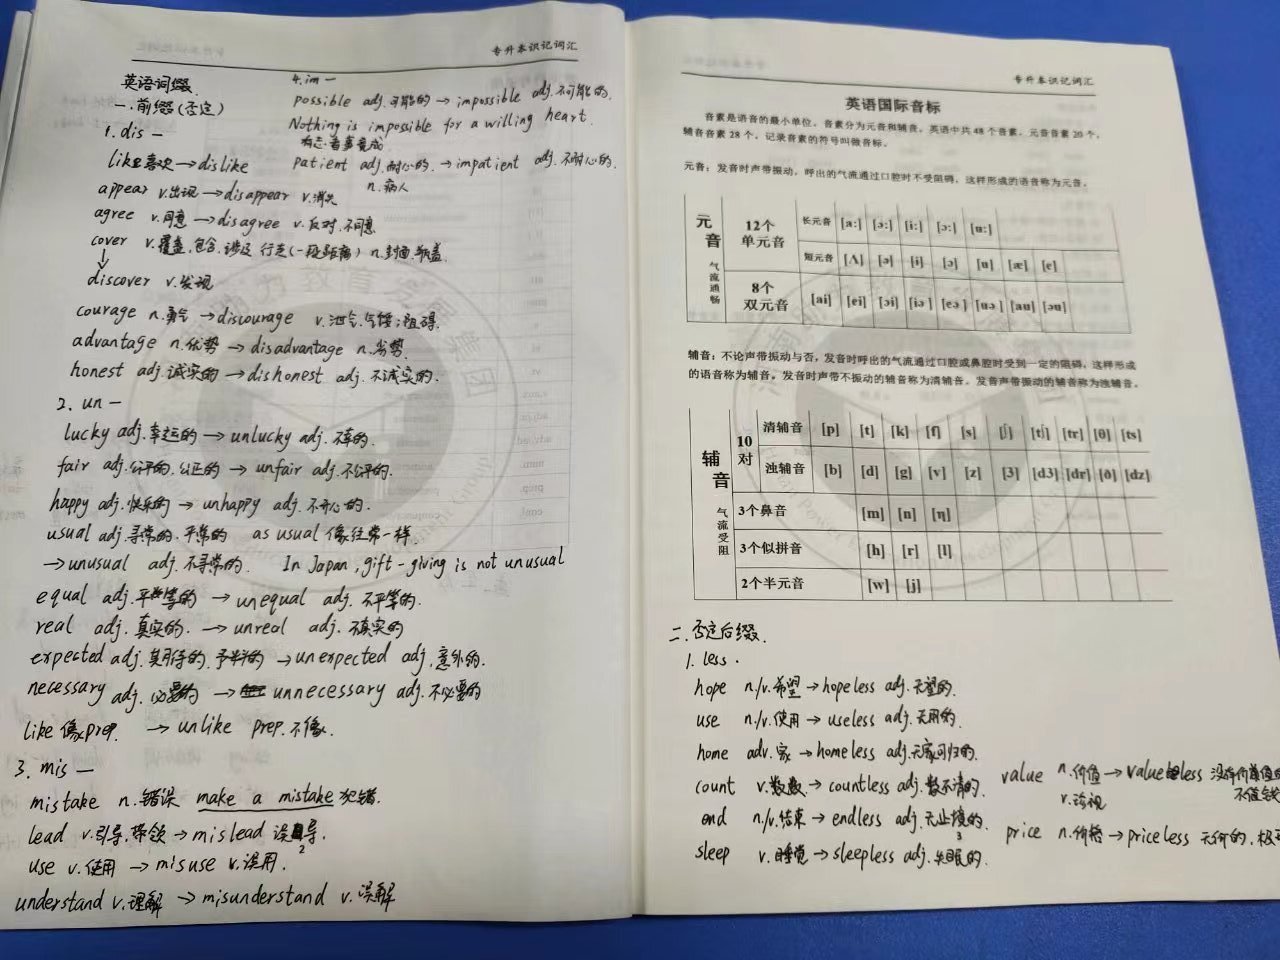 专升本识记词汇
英语词缀
一.前缀(否定)
1. dis —
like 喜欢→dislike
appear v.出现→disappear v.消失
agree v.同意→disagree v.反对.不同意
cover v.覆盖.包含.涉及 行走(一段距离) n.封面
↓
discover v.发现
courage n.勇气→discourage v.泄气.气馁;阻碍.
advantage n.优势→disadvantage n.劣势.
honest adj.诚实的→dishonest adj.不诚实的.
2. un —
lucky adj.幸运的→unlucky adj.不幸的.
fair adj.公平的.公正的→unfair adj.不公平的.
happy adj.快乐的→unhappy adj.不开心的.
usual adj.寻常的.平常的 as usual 像往常一样.
→unusual adj.不寻常的. In Japan, gift-giving is not unusual
equal adj.平等的→unequal adj.不平等的.
real adj.真实的.→unreal adj.不真实的
expected adj.期待的.预料的→unexpected adj.意外的.
necessary adj.必要的→unnecessary adj.不必要的
like 像prep. →unlike prep.不像.
3. mis —
mistake n.错误 make a mistake 犯错.
lead v.引导.带领→mislead 误导.
use v.使用→misuse v.误用.
understand v.理解→misunderstand v.误解
4. im —
possible adj.可能的→impossible adj.不可能的.
Nothing is impossible for a willing heart.
有志者事竟成
patient adj.耐心的.→impatient adj.不耐心的.
n.病人
专升本识记词汇
英语国际音标
音素是语音的最小单位。音素分为元音和辅音。英语中共 48 个音素。元音音素 20 个，
辅音音素 28 个，记录音素的符号叫做音标。
元音：发音时声带振动，呼出的气流通过口腔时不受阻碍，这样形成的语音称为元音。
元音 气流通畅
12个单元音 长元音 [a:] [ɔ:] [i:] [ɔ:] [u:]
短元音 [ʌ] [ə] [i] [ɔ] [u] [æ] [e]
8个双元音 [ai] [ei] [ɔi] [iə] [eə] [uə] [au] [əu]
辅音：不论声带振动与否，发音时呼出的气流通过口腔或鼻腔时受到一定的阻碍，这样形成
的语音称为辅音。发音时声带不振动的辅音称为清辅音。发音声带振动的辅音称为浊辅音。
辅音 气流受阻
10对 清辅音 [p] [t] [k] [f] [s] [ʃ] [tʃ] [tr] [θ] [ts]
浊辅音 [b] [d] [g] [v] [z] [ʒ] [dʒ] [dr] [ð] [dz]
3个鼻音 [m] [n] [ŋ]
3个似拼音 [h] [r] [l]
2个半元音 [w] [j]
二.否定后缀.
1. less.
hope n./v.希望→hopeless adj.无望的.
use n./v.使用→useless adj.无用的.
home adv.家→homeless adj.无家可归的.
count v.数数→countless adj.数不清的.
end n./v.结束→endless adj.无止境的.
sleep v.睡觉→sleepless adj.失眠的.
value n.价值→valueless 没有价值的
v.珍视 不值钱
price n.价格→priceless 无价的.极